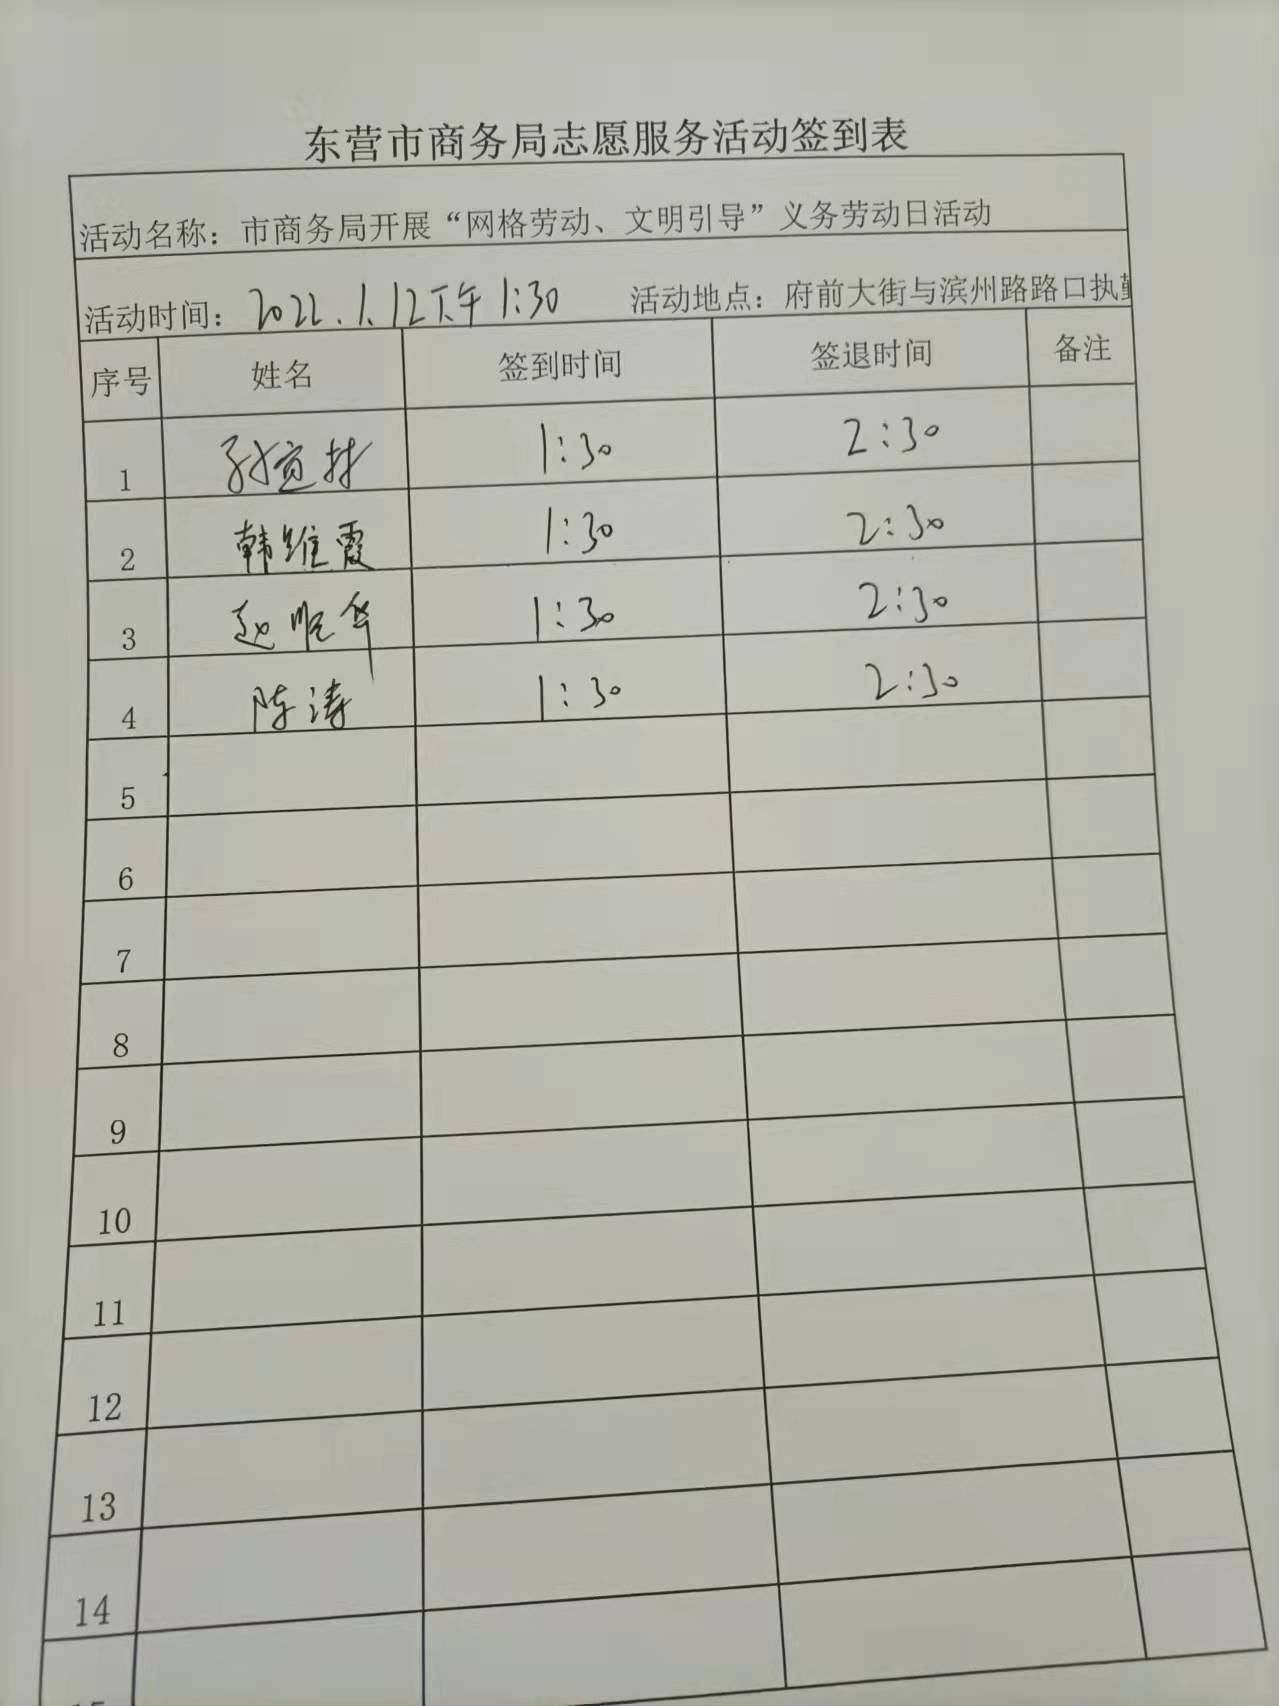 东营市商务局志愿服务活动签到表
活动名称：市商务局开展“网格劳动、文明引导”义务劳动日活动
活动时间：2022.1.12下午1:30 活动地点：府前大街与滨州路路口执勤
序号 姓名 签到时间 签退时间 备注
1 孙宜林 1:30 2:30
2 韩维霞 1:30 2:30
3 赵顺华 1:30 2:30
4 陈涛 1:30 2:30
5
6
7
8
9
10
11
12
13
14